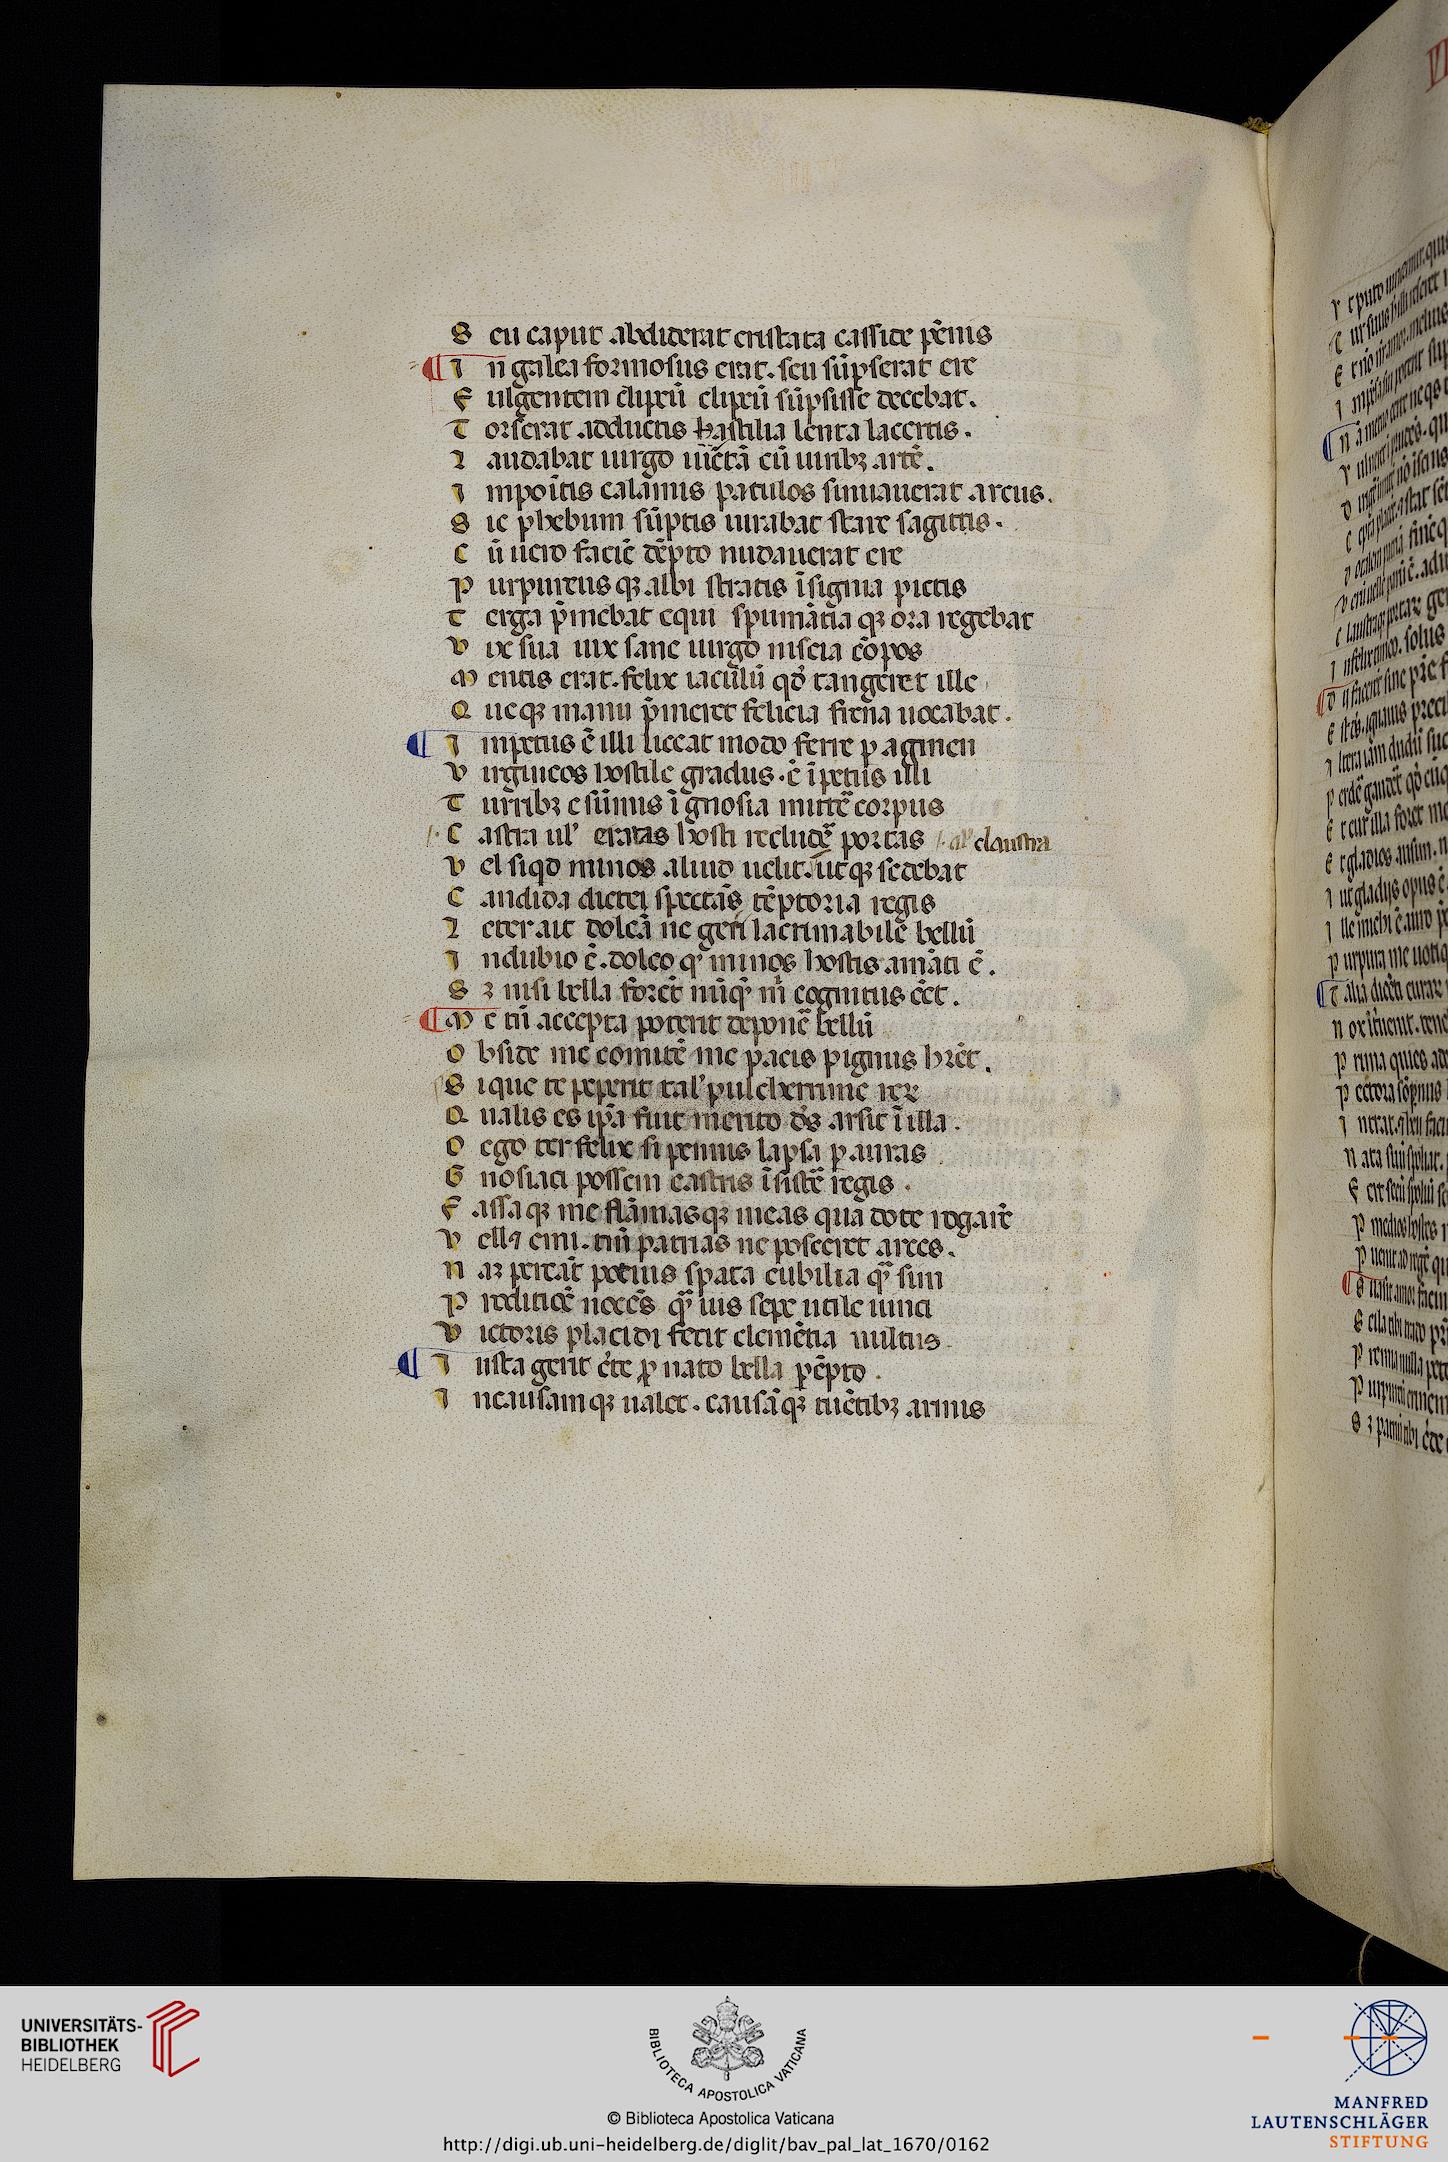 S eu caput abdiderat cristata casside pēnis
I n galea formosus erat. seu sūpserat ere
F ulgentem clipeū clipeū sūpsisse decebat.
T orserat adductis hastilia lenta lacertis.
L audabat uirgo iūctā cū uiribꝫ artē.
I mpoītis calamis patulos sinuauerat arcus.
S ic phebum sūptis iurabat stare sagittis.
C ū uero faciē dēpto nudauerat ere
P urpureus qꝫ albi stratis īsignia pictis
T erga p̄mebat equi spumātia qꝫ ora regebat
V ix sua uix sane uirgo niseia cōpos
M entis erat. felix iaculū qd̓ tangeret ille
Q ue qꝫ manu p̄meret felicia frena uocabat.
I mpetus ē illi liceat modo ferre p agmen
V irgineos hostile gradus. ē īpetus illi
T urribꝫ e sūmis ī gnosia mittē corpus
C astra ul̓ eratas hosti recludē portas .al̓ claustra
V el siqd minos aliud uelit. utqꝫ sedebat
C andida dictei spectās tēptoria regis
L eter ait doleā ne geri lacrimabile bellū
I n dubio ē. doleo qͥ minos hostis amāti ē.
S ꝫ nisi bella forēt nūqͣ m̄ cognitus eēt.
M e tn̄ accepta poterit deponē bellū
O bside me comitē me pacis pignus hr̄et.
S i que te peperit tal̓ pulcherrime rex
Q ualis es ip̄a fuit merito ds̄ arsit ī illa.
O ego ter felix si pennis lapsa p auras
G nosiaci possem castris īsistē regis.
F assa qꝫ me flāmasqꝫ meas qua dote rogarē
V ellꝫ emi. tm̄ patrias ne posceret arces.
N aꝫ pereāt potius spata cubilia qͣ sim
P roditiōe nocēs qͣ uis sepe utile uinci
V ictoris placidi fecit clemētia multis.
I usta gerit c̄te p nato bella pēpto.
I n causamqꝫ ualet. causāqꝫ tuētibꝫ armis
UNIVERSITÄTS-
BIBLIOTHEK
HEIDELBERG
BIBLIOTECA APOSTOLICA VATICANA
© Biblioteca Apostolica Vaticana
http://digi.ub.uni-heidelberg.de/diglit/bav_pal_lat_1670/0162
MANFRED
LAUTENSCHLÄGER
STIFTUNG